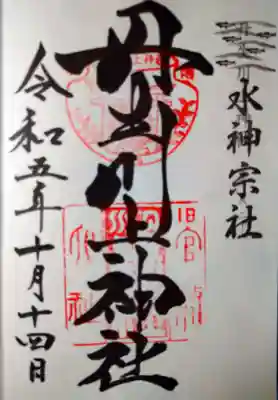 水神宗社
丹生川上神社
令和五年十月十四日